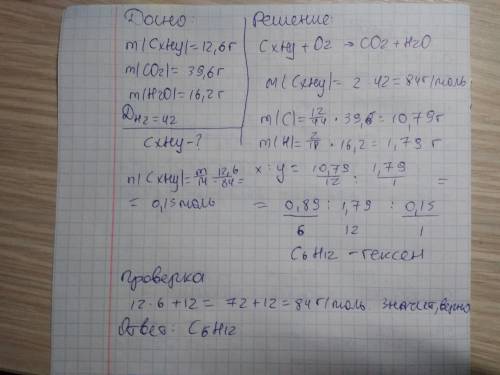 Дано:
m(CxHy)=12,6г
m(CO2)= 39,6г
m(H2O)=16,2г
DH2=42
CxHy-?
n(CxHy)= m/M 12,6/84=
= 0,15моль
Решение:
CxHy + O2 → CO2 + H2O
M(CxHy)= 2 42 = 84г/моль
m(C)= 12/44 • 39,6 = 10,79г
m(H)= 2/18 • 16,2 = 1,79 г
x:y = 10,79/12 : 1,79/1 =
= 0,89 : 1,79 : 0,15
6 12 1
C6H12 - гексен
Проверка
12•6+12= 72+12=84г/моль значит, верно
Ответ: C6H12